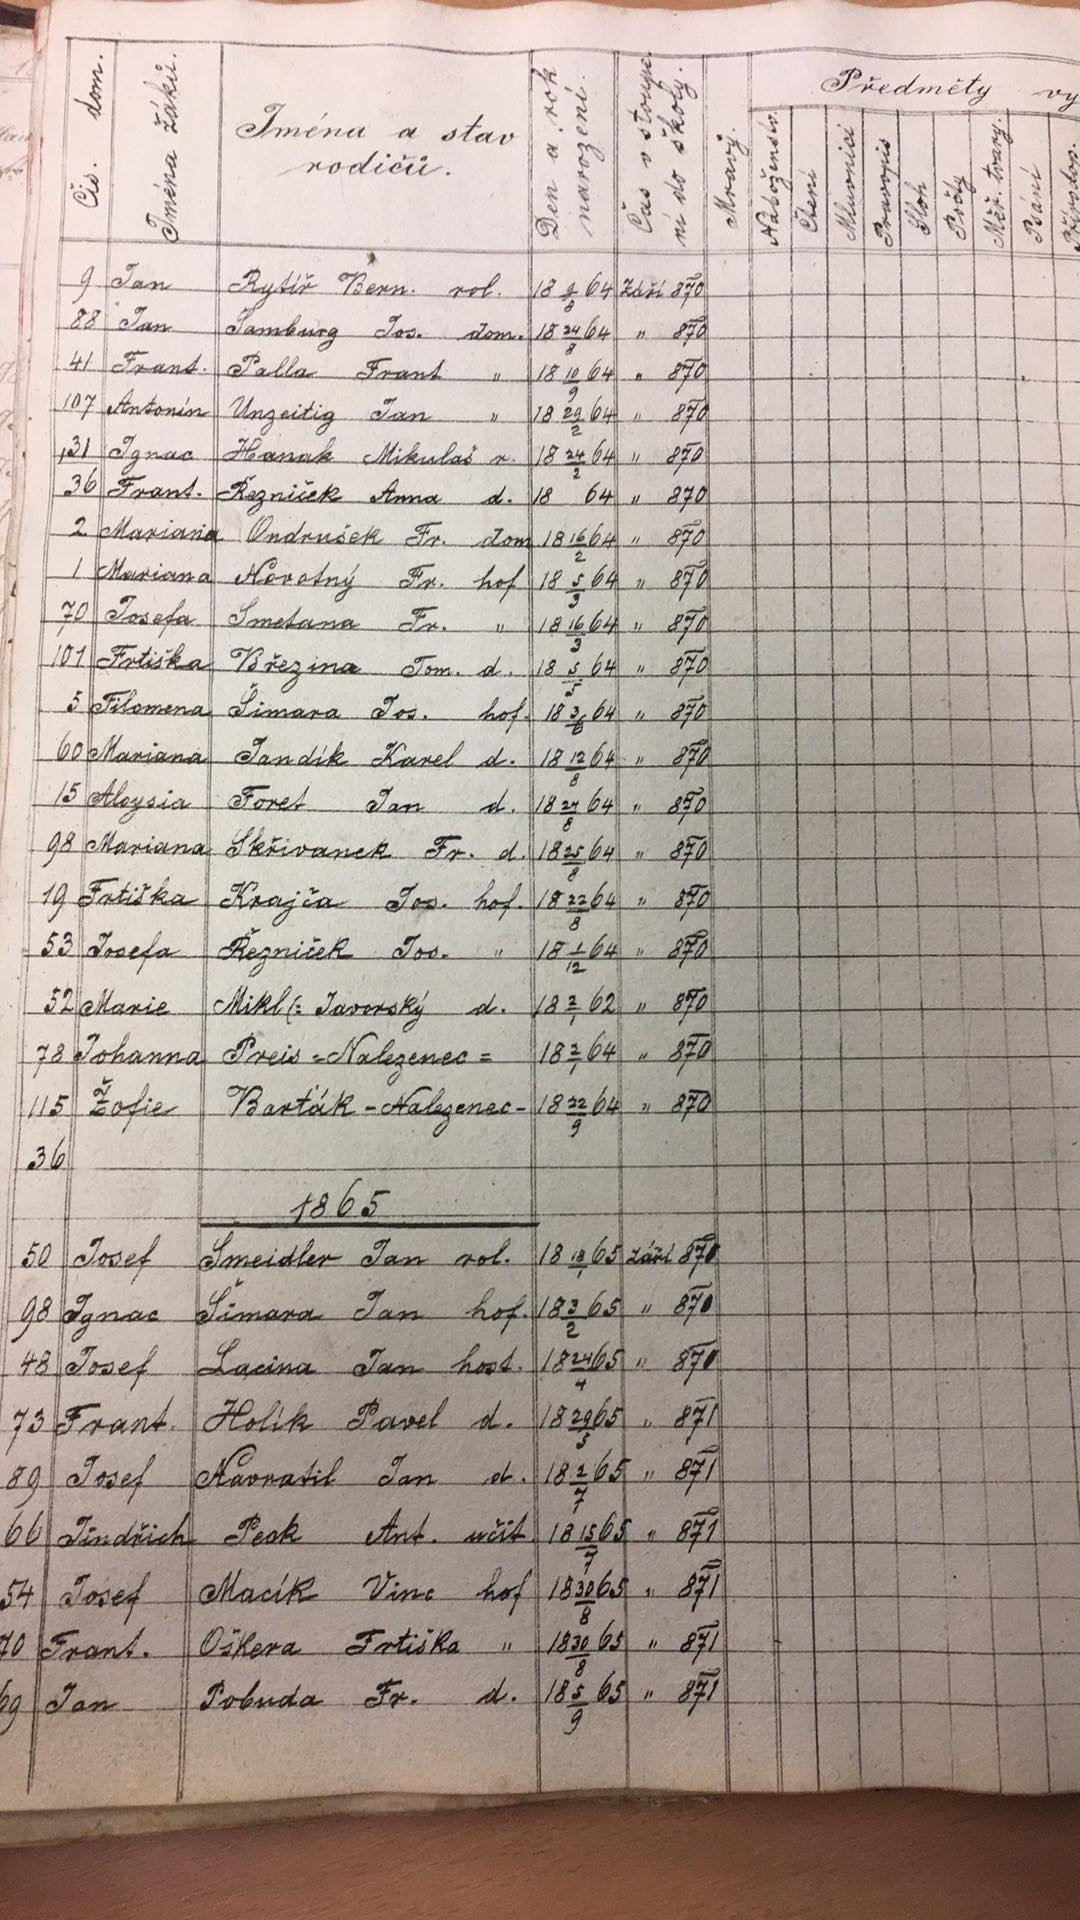 Čís. dom.
Jména žáků.
Jména a stav rodičů.
Den a rok narození.
Čas vstoupení do školy.
Mravy.
Předměty vy
Náboženství
Čtení
Mluvnici
Pravopis
Sloh
Počty
Měř. tvary.
Psaní
Přírodop.
9 Jan Rytíř Bern. rol. 18 9/8 64 Září 870
88 Jan Jamburg Jos. dom. 18 24/8 64 " 870
41 Frant. Palla Frant " 18 10/9 64 " 870
107 Antonín Unzeitig Jan " 18 29/2 64 " 870
31 Ignac Hanak Mikulaš r. 18 24/2 64 " 870
36 Frant. Řezniček Anna d. 18 64 " 870
2 Mariana Ondrušek Fr. dom 18 16/2 64 " 870
1 Mariana Novotný Fr. hof 18 5/3 64 " 870
70 Josefa Smetana Fr. " 18 16/3 64 " 870
101 Frtiška Březina Tom. d. 18 5/5 64 " 870
5 Filomena Šimara Jos. hof. 18 3/6 64 " 870
60 Mariana Jandík Karel d. 18 12/8 64 " 870
15 Aloysia Foret Jan d. 18 24/8 64 " 870
98 Mariana Skřivanek Fr. d. 18 25/8 64 " 870
19 Frtiška Krajča Jos. hof. 18 22/8 64 " 870
53 Josefa Řezniček Jos. " 18 1/12 64 " 870
52 Marie Mikl (: Javorský d. 18 2/1 62 " 870
78 Johanna Preis = Nalezenec = 18 2/1 64 " 870
115 Žofie Barták - Nalezenec - 18 22/9 64 " 870
36
1865
50 Josef Smeidler Jan rol. 18 18/1 65 Září 870
98 Ignac Šimara Jan hof. 18 3/2 65 " 870
48 Josef Lacina Jan host. 18 24/4 65 " 870
73 Frant. Holík Pavel d. 18 29/5 65 " 871
89 Josef Navratil Jan d. 18 2/7 65 " 871
66 Jindřich Pesk Ant. učit. 18 15/7 65 " 871
54 Josef Macík Vinc hof 18 30/8 65 " 871
70 Frant. Oškera Frtiška " 18 30/8 65 " 871
69 Jan Pobuda Fr. d. 18 5/9 65 " 871